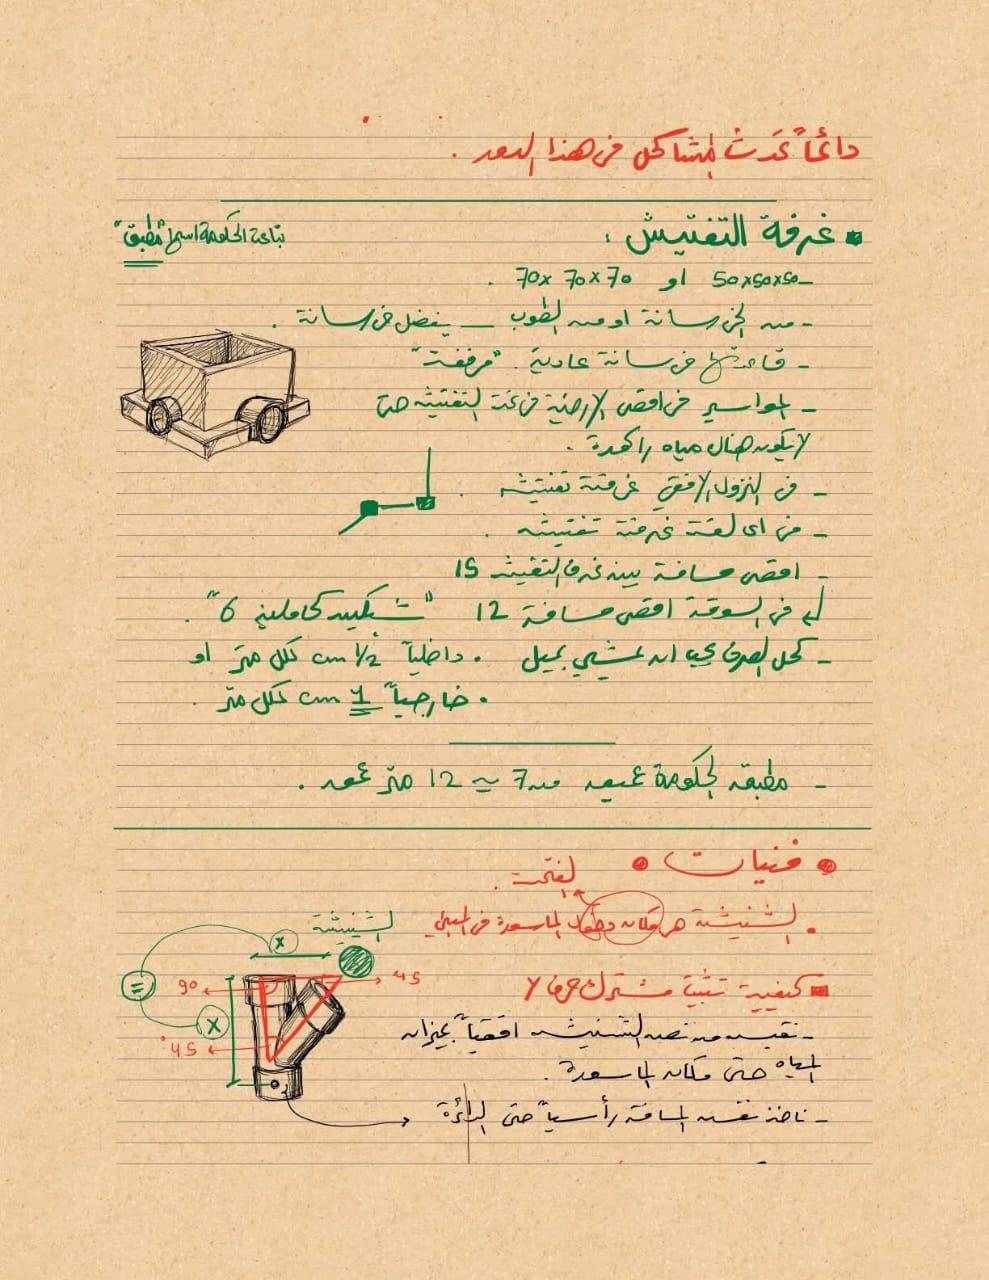 دائماً تحدث المشاكل في هذا البعد .
غرفة التفتيش :
بتاعة الحكومة اسمها "مطبق"
- 50x50x50 او 70x70x70 .
- من الخرسانة او من الطوب — يفضل خرسانة .
- قاعدتها خرسانة عادية .
- المواسير في اقصى الارضية في غرفة التفتيش حتى
لا يكون هناك مياه راكدة .
- في النزول الافقي غرفة تفتيش .
- في اى لفة غرفة تفتيش .
- اقصى مسافة بين غرف التفتيش 15
في السوقة اقصى مسافة 12 "6 .
- كل الصرف يجب ان يمشي بميل . داخلياً 1/2 cm لكل متر او
. خارجياً 1 cm لكل متر .
- مطبق الحكومة عميق من 7 - 12 متر عمق .
فنيات
الفتحة .
. الشنيشة هي مكان دخول الماسورة في المبنى
الشنيشة
كيفية تثبيت مشترك حرف Y
x
=
x
90
45
45°
- نقيس من نص الشنيشة افقياً بميزان
المياه حتى مكان الماسورة .
- ناخذ نفس المسافة رأسياً حتى الدائرة